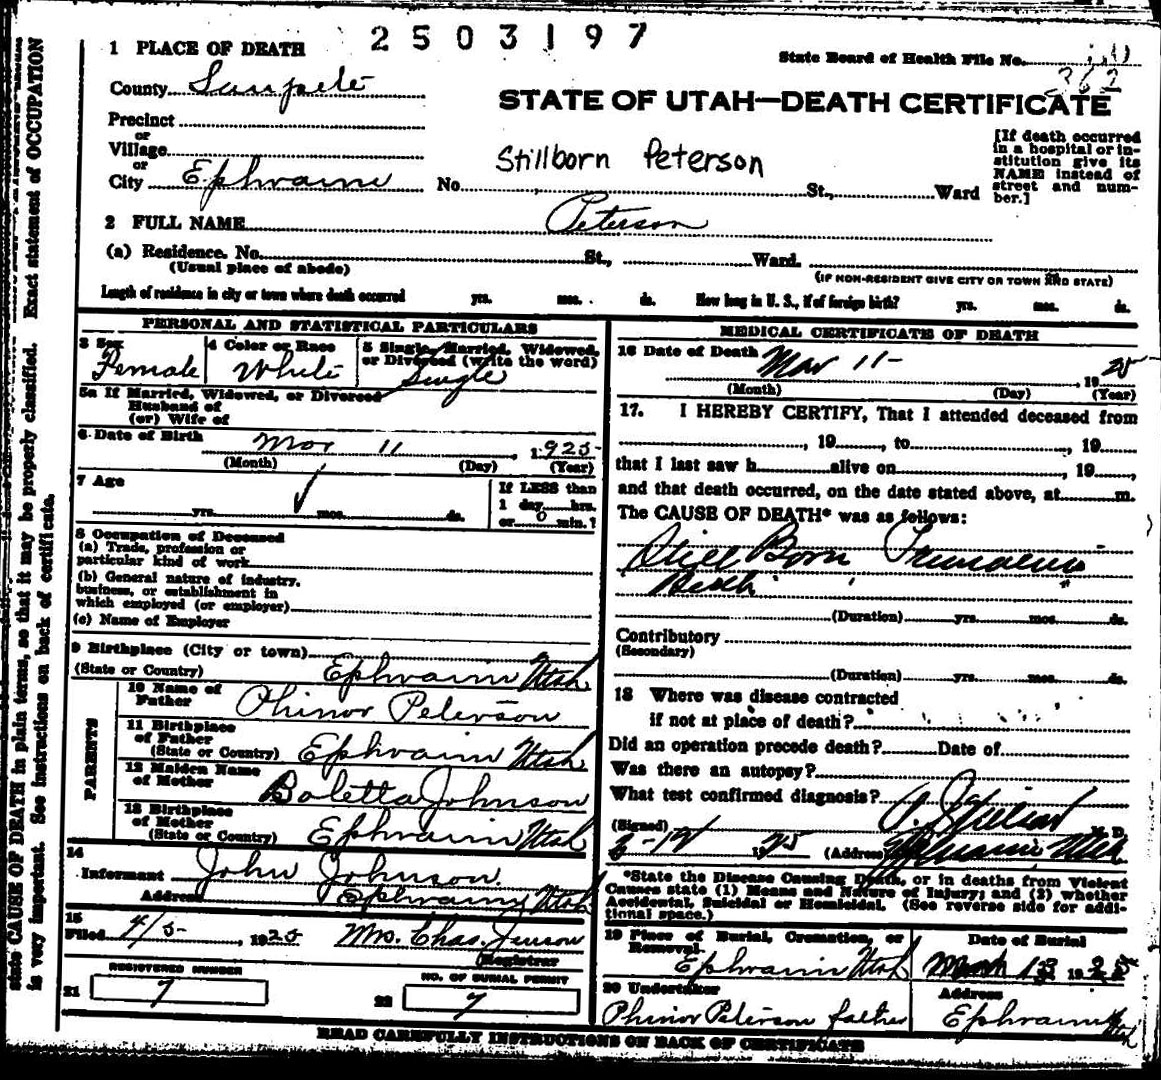 2503197
1 PLACE OF DEATH
State Board of Health File No.
362
County Sanpete
STATE OF UTAH—DEATH CERTIFICATE
Precinct
or
Village
or
City Ephraim No. St., Ward
Stillborn Peterson
[If death occurred
in a hospital or in-
stitution give its
NAME instead of
street and num-
ber.]
2 FULL NAME Peterson
(a) Residence. No. St., Ward.
(Usual place of abode)
(IF NON-RESIDENT GIVE CITY OR TOWN AND STATE)
Length of residence in city or town where death occurred yrs. mos. ds. How long in U. S., if of foreign birth? yrs. mos. ds.
state CAUSE OF DEATH in plain terms, so that it may be properly classified. Exact statement of OCCUPATION
is very important. See instructions on back of certificate.
PERSONAL AND STATISTICAL PARTICULARS
3 Sex
Female
4 Color or Race
White
5 Single, Married, Widowed,
or Divorced (write the word)
Single
5a If Married, Widowed, or Divorced
Husband of
(or) Wife of
6 Date of Birth Mar 11, 1925
(Month) (Day) (Year)
7 Age
yrs. mos. ds.
If LESS than
1 day hrs.
or 0 min.?
8 Occupation of Deceased
(a) Trade, profession or
particular kind of work
(b) General nature of industry,
business, or establishment in
which employed (or employer)
(c) Name of Employer
9 Birthplace (City or town)
(State or Country) Ephraim Utah
PARENTS
10 Name of
Father Phinor Peterson
11 Birthplace
of Father
(State or Country) Ephraim Utah
12 Maiden Name
of Mother Boletta Johnson
13 Birthplace
of Mother
(State or Country) Ephraim Utah
14
Informant John Johnson.
Address Ephraim Utah
15
Filed 4/5-, 1925 Mrs. Chas. Jenson
Registrar
REGISTERED NUMBER
21 7
NO. OF BURIAL PERMIT
22 7
MEDICAL CERTIFICATE OF DEATH
16 Date of Death Mar 11-, 1925
(Month) (Day) (Year)
17. I HEREBY CERTIFY, That I attended deceased from
, 19, to , 19
that I last saw h alive on , 19,
and that death occurred, on the date stated above, at m.
The CAUSE OF DEATH* was as follows:
Still Born Premature
Birth
(Duration) yrs. mos. ds.
Contributory
(Secondary)
(Duration) yrs. mos. ds.
18 Where was disease contracted
if not at place of death?
Did an operation precede death? Date of
Was there an autopsy?
What test confirmed diagnosis?
(Signed) M. D.
1925 (Address) Ephraim Utah
*State the Disease Causing Death, or in deaths from Violent
Causes state (1) Means and Nature of Injury; and (2) whether
Accidental, Suicidal or Homicidal. (See reverse side for addi-
tional space.)
19 Place of Burial, Cremation, or
Removal.
Ephraim Utah
Date of Burial
March 13 1925
20 Undertaker
Phinor Peterson father
Address
Ephraim Utah
READ CAREFULLY INSTRUCTIONS ON BACK OF CERTIFICATE